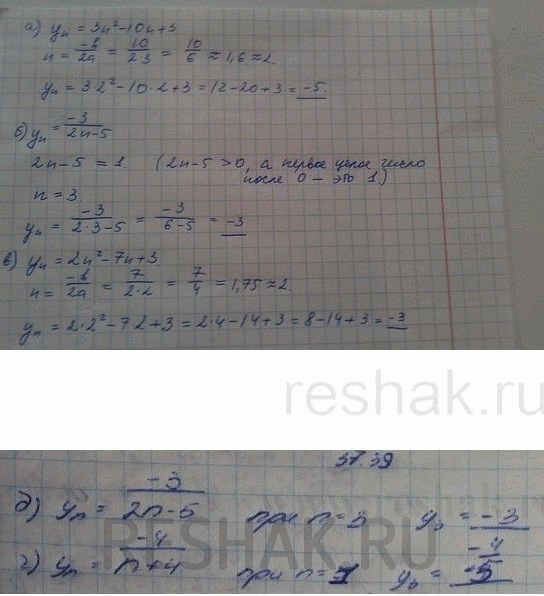 а) yₙ = 3n²-10n+3.
n = -b/2a = 10/2·3 = 10/6 ≈ 1,6 ≈ 2.
yₙ = 3·2²-10·2+3 = 12-20+3 = -5.
б) yₙ = -3/2n-5
2n-5 = 1. (2n-5>0, а первое целое число
после 0 - это 1.)
n = 3
yₙ = -3/2·3-5 = -3/6-5 = -3
в) yₙ = 2n²-7n+3.
n = -b/2a = 7/2·2 = 7/4 = 1,75 ≈ 2.
yₙ = 2·2²-7·2+3 = 2·4-14+3 = 8-14+3 = -3
reshak.ru
37.39
д) yₙ = -3/2n-5 при n=3 y₃ = -3
RESHAK.RU
г) yₙ = -4/n+4 при n=1 = -4/5